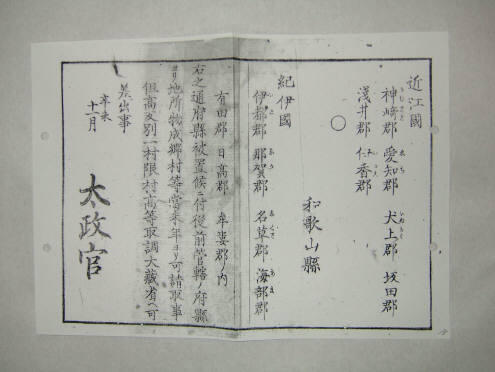 近江國
神﨑郡 愛知郡 犬上郡 坂田郡
淺井郡 伊香郡
○
和歌山縣
紀伊國
伊都郡 那賀郡 名草郡 海部郡
有田郡 日高郡 牟婁郡ノ内
右之通府縣被置候ニ付從前管轄ノ府縣
ヨリ地所物成鄕村等當未年ヨリ可請取事
但高反別一村限村高等取調大藏省ヘ可
差出事
辛未
十一月
太政官